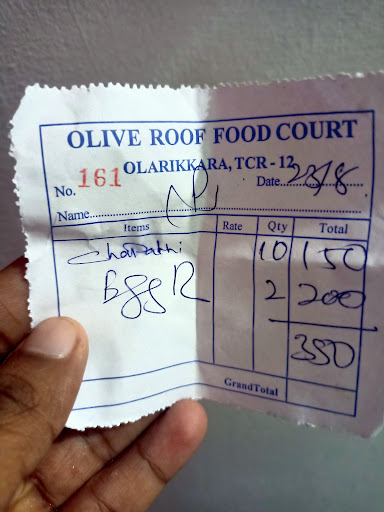 OLIVE ROOF FOOD COURT
OLARIKKARA, TCR - 12
No. 161 Date 23/8
Name
Items Rate Qty Total
Chapathi 10 150
Egg R 2 200
350
Grand Total